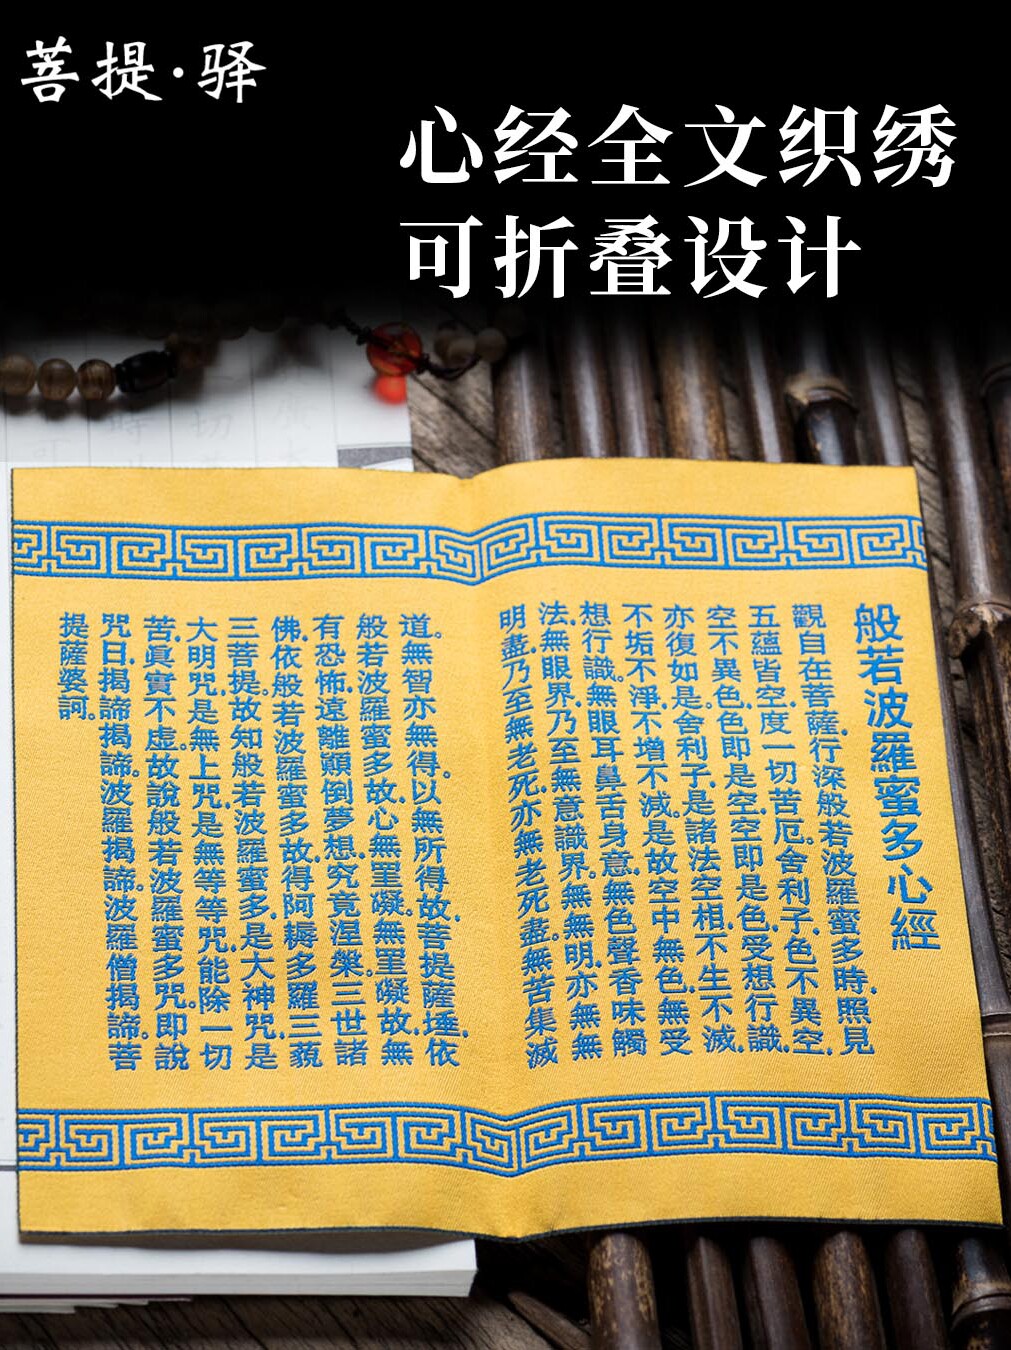 菩提·驿
心经全文织绣
可折叠设计
般若波羅蜜多心經
觀自在菩薩.行深般若波羅蜜多時.照見
五蘊皆空.度一切苦厄。舍利子.色不異空.
空不異色.色即是空.空即是色.受想行識.
亦復如是。舍利子.是諸法空相.不生不滅.
不垢不淨.不增不減。是故空中無色.無受
想行識。無眼耳鼻舌身意.無色聲香味觸
法.無眼界.乃至無意識界。無無明.亦無無
明盡.乃至無老死.亦無老死盡。無苦集滅
道。無智亦無得。以無所得故.菩提薩埵.依
般若波羅蜜多故.心無罣礙。無罣礙故.無
有恐怖.遠離顛倒夢想.究竟涅槃。三世諸
佛.依般若波羅蜜多故.得阿耨多羅三藐
三菩提。故知般若波羅蜜多.是大神咒.是
大明咒.是無上咒.是無等等咒.能除一切
苦.眞實不虛。故說般若波羅蜜多咒。即說
咒曰.揭諦揭諦。波羅揭諦。波羅僧揭諦。菩
提薩婆訶。